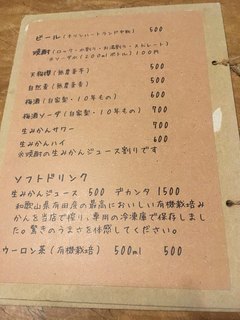 ビール(キリンハートランド中瓶) 500
焼酎(ロック・水割り・お湯割り・ストレート)
※ソーダ割(200mlボトル)100円
天狗櫻(無農薬芋) 500
自然麦(無農薬麦) 500
梅酒(自家製・10年もの) 600
梅酒ソーダ(自家製・10年もの) 700
生みかんサワー 700
生みかんハイ 600
※焼酎の生みかんジュース割りです。
ソフトドリンク
生みかんジュース 500 デカンタ 1500
和歌山県有田産の最高においしい有機栽培み
かんを当店で搾り、専用の冷凍庫で保存しまし
た。驚きのうまさを体感してください。
ウーロン茶(有機栽培) 500ml 500